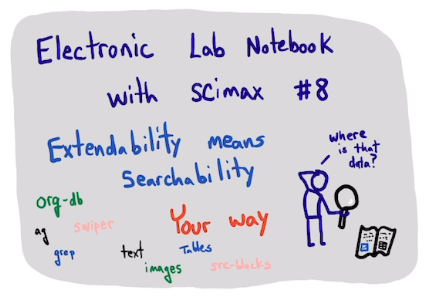 Electronic Lab Notebook
with scimax #8
Extendability means
Searchability
Your way
where
is that
data?
org-db
ag
swiper
grep
text
images
Tables
src-blocks